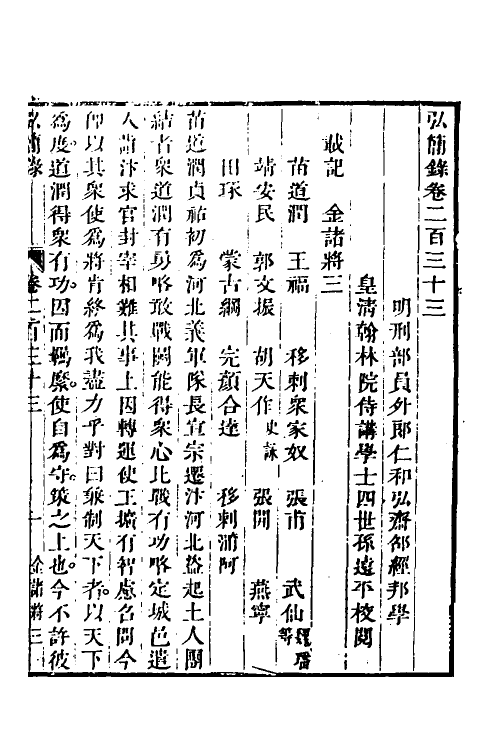 弘簡錄卷二百三十三
明刑部員外郎仁和弘齋邵經邦學
皇淸翰林院侍講學士四世孫遠平校閱
載記　金諸將三
苗道潤　王福　移剌衆家奴　張甫　武仙 等
靖安民　郭文振　胡天作 史詠　張開　燕寧
田琢　蒙古綱　完顏合達　移剌蒲阿
苗道潤貞祐初爲河北義軍隊長宣宗遷汴河北盜起土人團
結者衆道潤有勇略敢戰鬭能得衆心比戰有功略定城邑遣
人詣汴求官封宰相難其事上因轉運使王擴有智慮召問今
卽以其衆使爲將肯終爲我盡力乎對曰兼制天下者以天下
爲度道潤得衆有功因而羈縻使自爲守策之上也今不許彼
弘簡錄　卷二百三十三　一　金諸將三